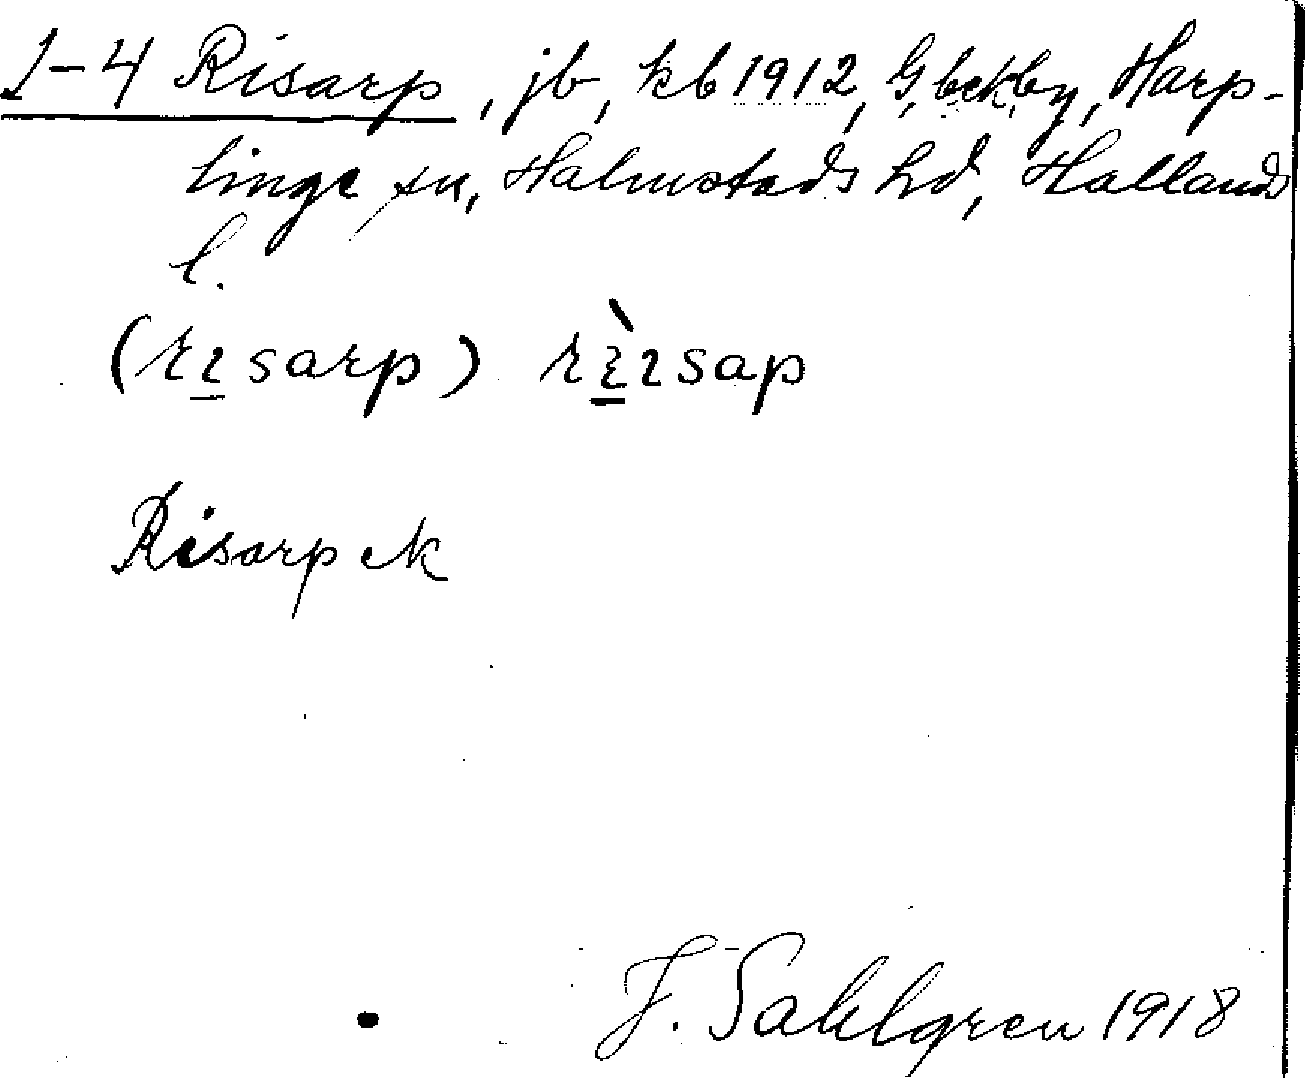 1-4 Risarp, jb, kb 1912, Harp-
linge sn, Halmstads hd, Hallands
l.
(rɩsarp)
Risarp ek
J. Sahlgren 1918